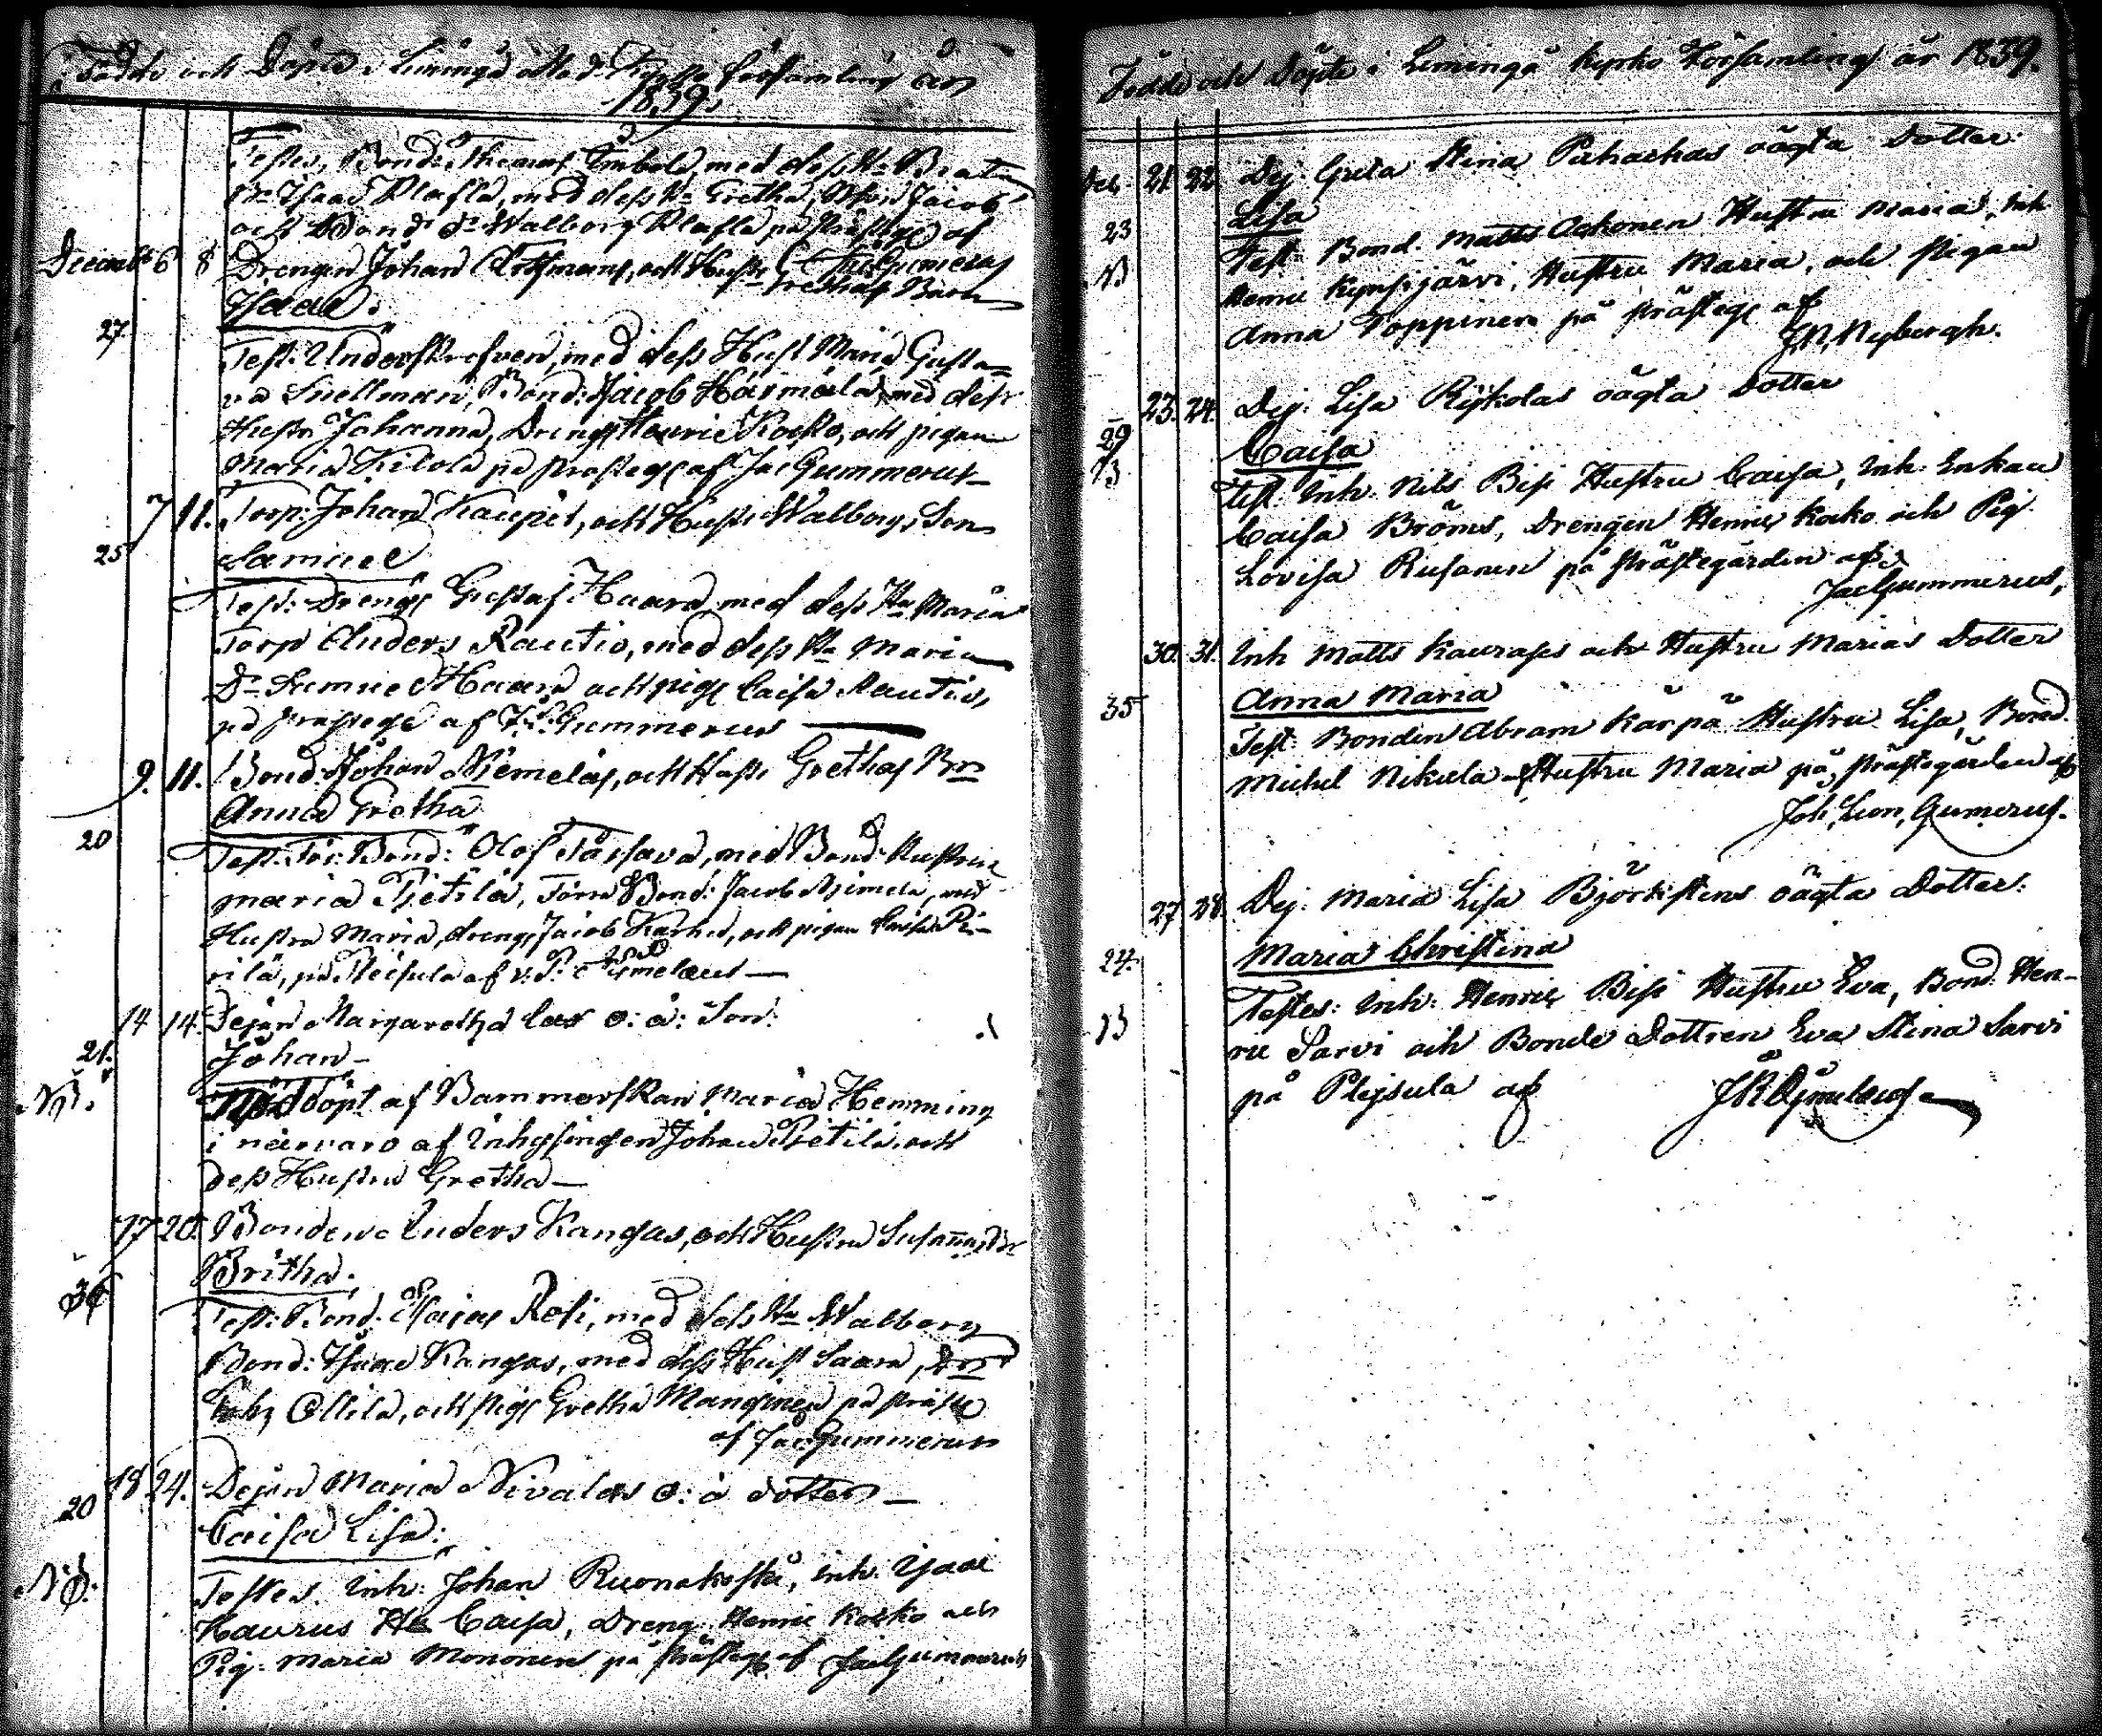 Födde och Döpte i Limingå Moderkyrko församling år
1839.
Testes, Bond: ThomasImbola, med dess Hu Beata
Bn Isaac Klasla, med dess Hu Gretha, Jacob
och Bond dr Walborg Klasla på Prästg af
Gummerus
Decemb 6 8 Drengen Johan och Hustr Grethas Barn
Isaac.
27
Test: Underskrefven, med dess Hust Maria Gusta=
va Snellman, Bond: Jacob Härmälä, med dess
Hustr Johanna, Dreng Henric Kosko, och pigan
Maria Kilola på prästege af Jac Gummerus
7 11. Torp: Johan Kaupis, och Hustr Walborgs Son
25 Samuel
Test: Drengs Gustaf Haara med dess Hu Maria
Torp Anders Rautio, med dess Hu Maria
Dr Samuel Haara och pig Caisa Rautio,
på prästege af J. L. Gummerus
9. 11. Bond: Johan Niemeläs, och Hustr Grethas Bn
Anna Gretha
20
Test: för: Bond: Olof Tassava, med Bond Hustrun
Maria Pietilä, förra Bond: Jacob Niemela, med
Hustru Maria, dreng Jacob Karhu, och pigan Caisa Pi-
rilä, på Pleisula af v: P:
14 14. Dejan Margaretha o: ä: Son:
21. Johan
Nöddöpt af Barnmorskan Maria Hemming
i närvaro af Inhysingen Johan Pietilä och
dess Hustru Gretha
17 20. Bonden Anders Kangas, och Hustru Susannas Dr
Britha.
36
Test: Bond: Esaias Rosi, med dess Hu Walborg
Bond: Isaac Kangas, med dess Hust Saara,
Ollila, och pig Gretha Manninen på präste
af Jac: Gummerus
18 24. Dejan Maria Nivalas o: ä dotter
20 Caisa Lisa:
Testes. Inh: Johan Ruonakoski, Inh: Isaac
Kaurus Hu Caisa, Dreng Henric Kosko och
Pig: Maria Mononen på Prästeg af Jac Gummerus
Födde och Döpte i Limingå Kyrko Församling år 1839.
Dec. 21 22 Dej: Greta Stina Puhackas oägta Dotter:
23 Lisa
Test: Bond. Matts Ockonen Hustru Maria, Inh
Henric Kynsijärvi, Hustru Maria, och Pigan
Anna Toppinen på prästeg af
J.N. Nybergh.
23. 24. Dej: Lisa Ryskolas oägta Dotter
29 Caisa
Test: Inh: Nils Bisi Hustru Caisa, Inh: Enkan
Caisa Bröms, Drengen Henric Kosko och Pig
Lovisa Rusanen på Prästegården af
Jac Gummerus,
30. 31. Inh Matts Kaurases och Hustru Marias Dotter
35 Anna Maria
Test: Bonden Abram Kärpä Hustru Lisa, Bond.
Michel Nikula Hustru Maria på Prästegården af
Joh. Leon, Gumerus.
27 28. Dej: Maria Lisa Björkstens oägta Dotter:
24. Maria Christina
Testes: Inh: Henric Bisi Hustru Eva, Bond. Hen-
ric Sarvi och Bonde Dottren Eva Stina Sarvi
på Plejsula af